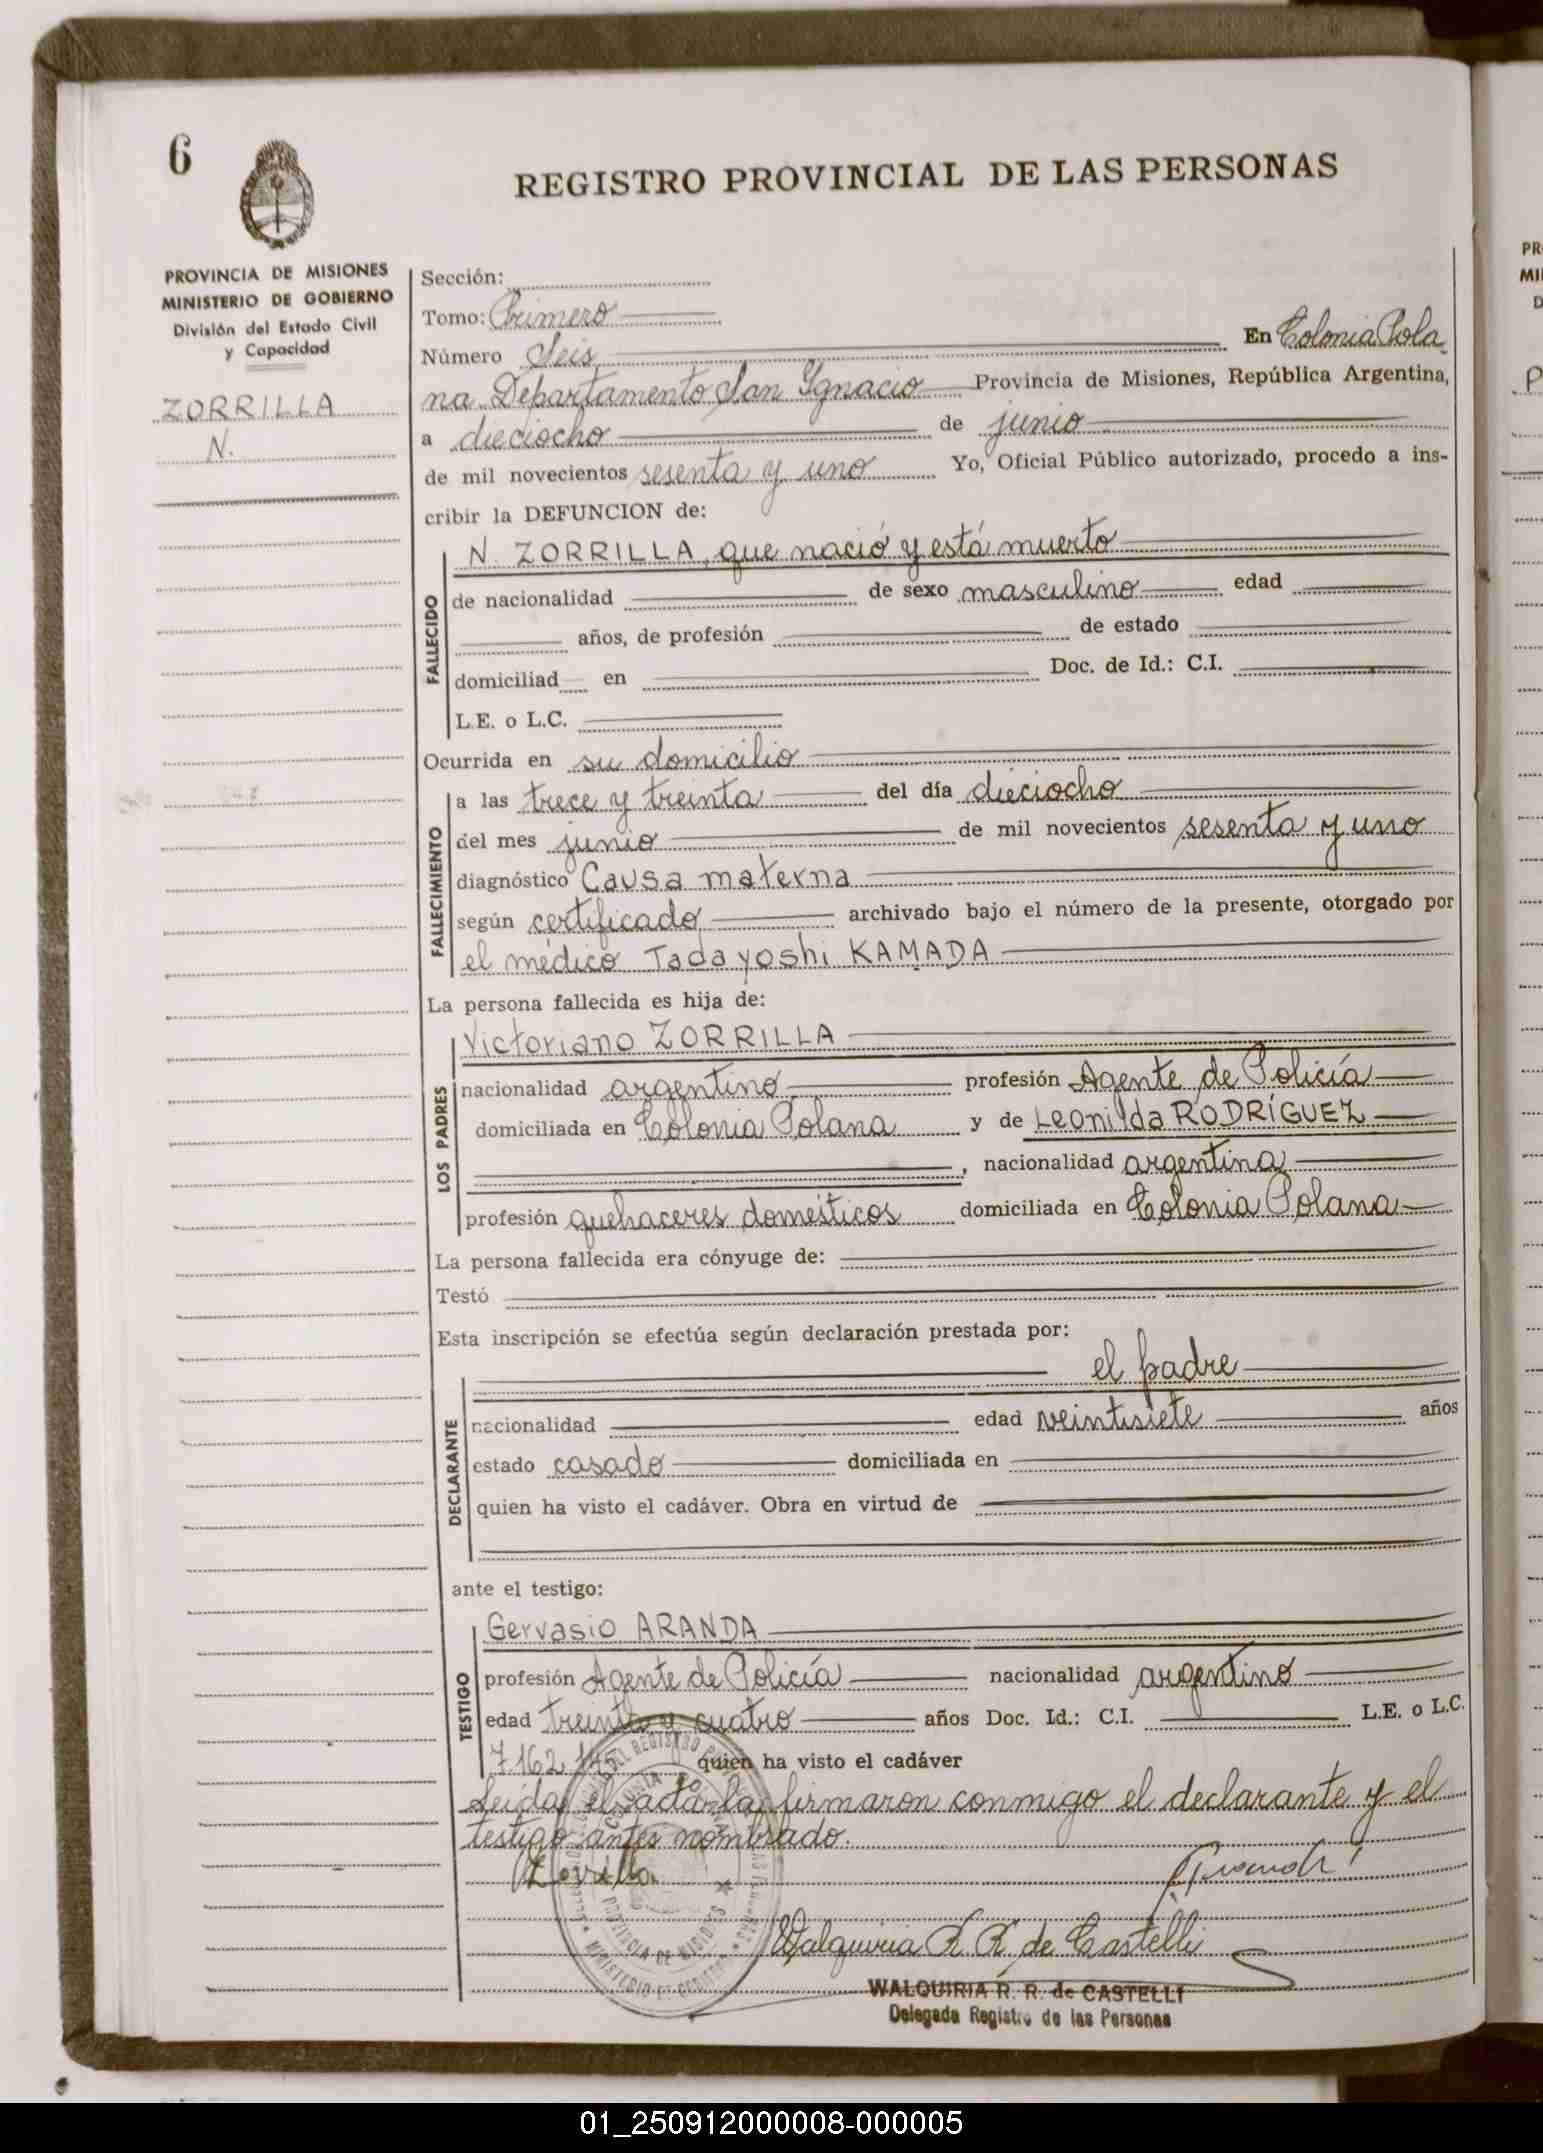 6
REGISTRO PROVINCIAL DE LAS PERSONAS
PROVINCIA DE MISIONES
MINISTERIO DE GOBIERNO
División del Estado Civil
y Capacidad
ZORRILLA
N.
Sección:
Tomo: Primero
Número Seis En Colonia Pola
na Departamento San Ignacio Provincia de Misiones, República Argentina,
a dieciocho de junio
de mil novecientos sesenta y uno Yo, Oficial Público autorizado, procedo a ins-
cribir la DEFUNCION de:
FALLECIDO
N. ZORRILLA, que nació y está muerto
de nacionalidad de sexo masculino edad
años, de profesión de estado
domiciliad en Doc. de Id.: C.I.
L.E. o L.C.
Ocurrida en su domicilio
FALLECIMIENTO
a las trece y treinta del día dieciocho
del mes junio de mil novecientos sesenta y uno
diagnóstico Causa materna
según certificado archivado bajo el número de la presente, otorgado por
el médico Tadayoshi KAMADA
La persona fallecida es hija de:
LOS PADRES
Victoriano ZORRILLA
nacionalidad argentino profesión Agente de Policía
domiciliada en Colonia Polana y de Leonilda RODRÍGUEZ
, nacionalidad argentina
profesión quehaceres domésticos domiciliada en Colonia Polana
La persona fallecida era cónyuge de:
Testó
Esta inscripción se efectúa según declaración prestada por:
DECLARANTE
el padre
nacionalidad edad veintisiete años
estado casado domiciliada en
quien ha visto el cadáver. Obra en virtud de
ante el testigo:
TESTIGO
Gervasio ARANDA
profesión Agente de Policía nacionalidad argentino
edad treinta y cuatro años Doc. Id.: C.I. L.E. o L.C.
7.162.145 quien ha visto el cadáver
Leída el acta la firmaron conmigo el declarante y el
testigo antes nombrado.
Zorrilla
COLONIA POLANA
PROVINCIA DE MISIONES
MINISTERIO DE GOBIERNO
Walquiria R. R. de Castelli
WALQUIRIA R. R. de CASTELLI
Delegada Registro de las Personas
PR
MI
D
01_250912000008-000005